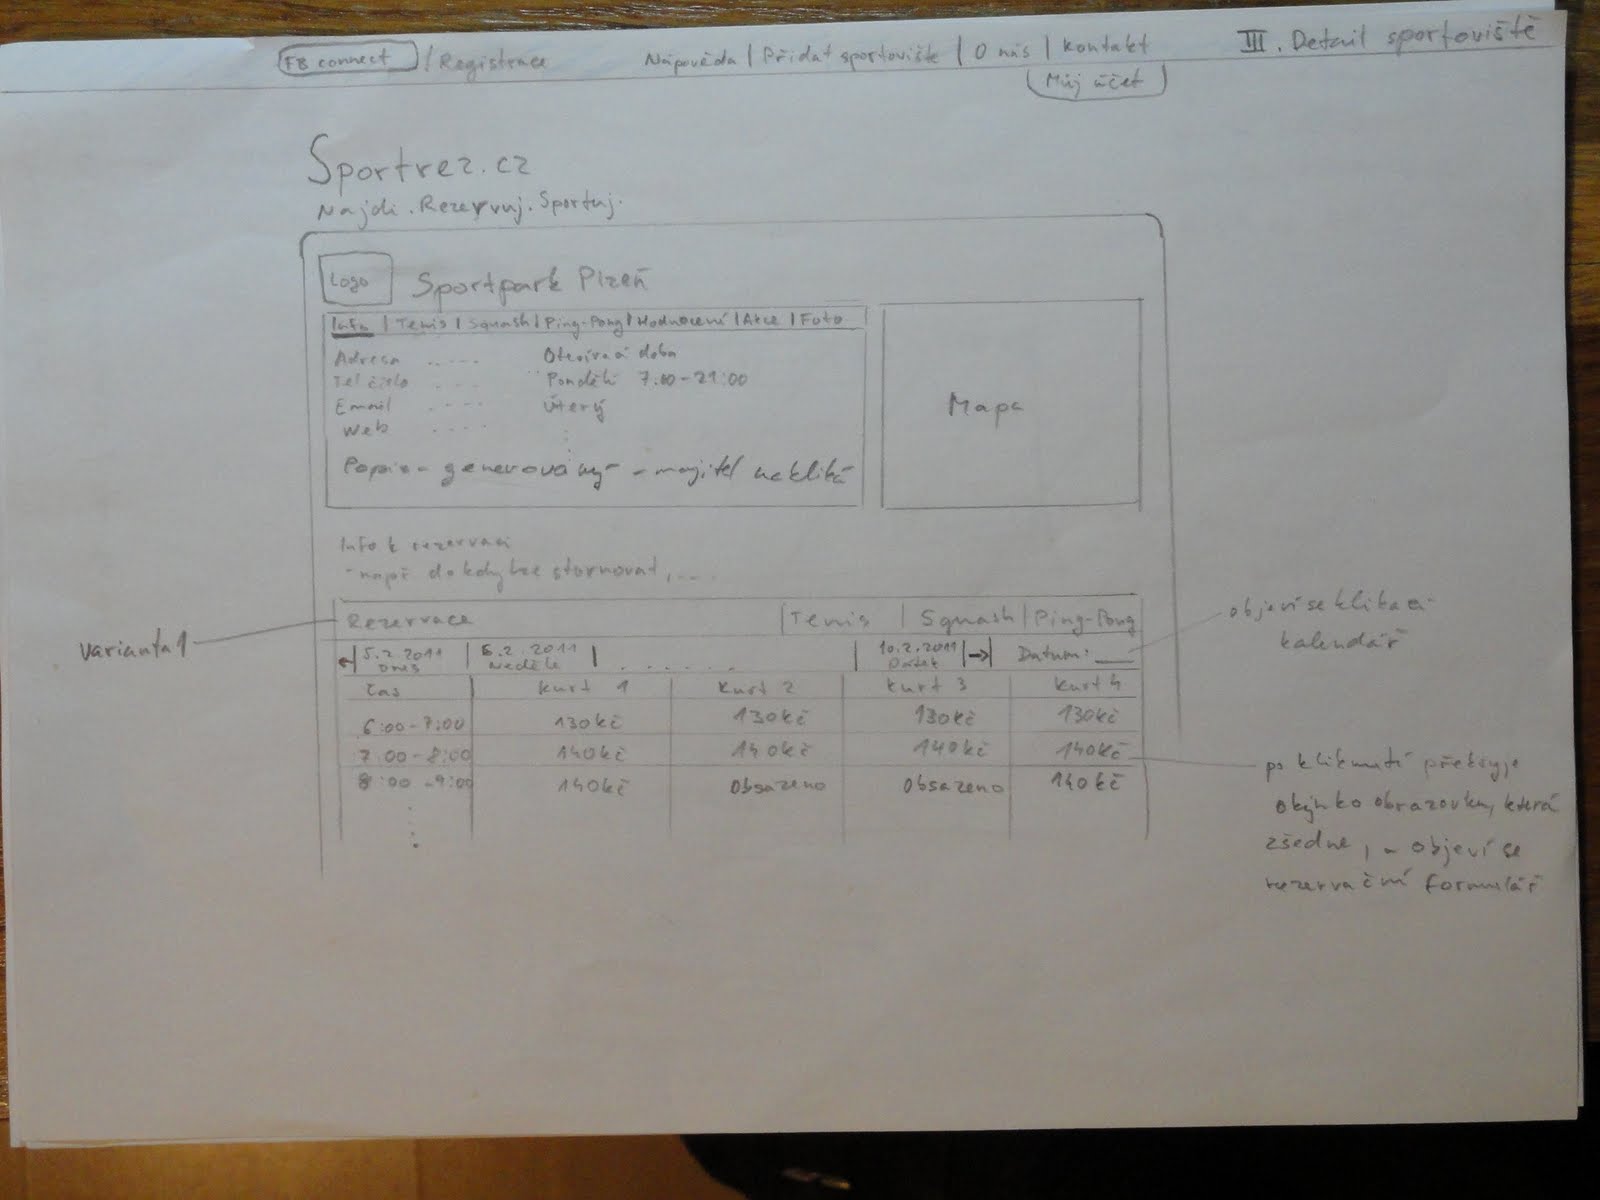 FB connect / Registrace Nápověda | Přidat sportoviště | O nás | Kontakt III. Detail sportoviště
Můj účet
Sportrez.cz
Najdi. Rezervuj. Sportuj.
Logo Sportpark Plzeň
Info | Tenis | Squash | Ping-Pong | Hodnocení | Akce | Foto
Adresa ..... Otevírací doba
Tel číslo ... Pondělí 7:00-21:00
Email .... Úterý
Web ....
Mapa
Popis - generovaný - majitel nekliká
Info k rezervaci
- např do kdy lze stornovat, ....
Varianta 1
Rezervace | Tenis | Squash | Ping-Pong
objeví se klikací
kalendář
← 5.2.2011 | 6.2.2011 | ...... | 10.2.2011 | → Datum: ___
Dnes Neděle
čas Kurt 1 Kurt 2 Kurt 3 Kurt 4
6:00-7:00 130kč 130kč 130kč 130kč
7:00-8:00 140kč 140kč 140kč 140kč
8:00-9:00 140kč Obsazeno Obsazeno 140kč
po kliknutí překryje
okýnko obrazovku, která
zšedne, a objeví se
rezervační formulář